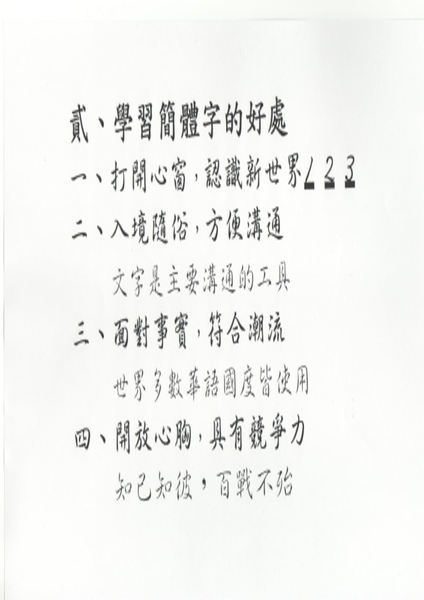 貳、學習簡體字的好處
一、打開心窗，認識新世界1 2 3
二、入境隨俗，方便溝通
文字是主要溝通的工具
三、面對事實，符合潮流
世界多數華語國度皆使用
四、開放心胸，具有競爭力
知己知彼，百戰不殆